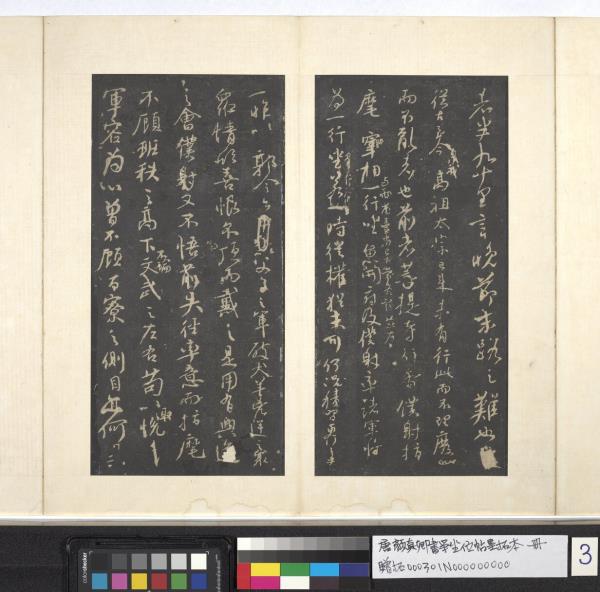 者半九十里言晚節末路之難也
從古至今暨我高祖太宗已來未有行此而不理廢此
而不亂者也前者菩提寺行香僕射指
麾宰相與兩省臺省已下常參官並為一行坐魚開府及僕射率諸軍將
為一行坐若一時從權亦猶未可何況積習更行之乎
一昨以郭令公以父子之軍破犬羊兇逆之衆
衆情欣喜恨不頂而戴之是用有興道
之會僕射又不悟前失徑率意而指麾
不顧班秩之高下不論文武之左右苟以取悅
軍容為心曾不顧百寮之側目亦何
唐顏真卿書爭坐位帖墨拓本 一冊
贈拓000301N000000000
3